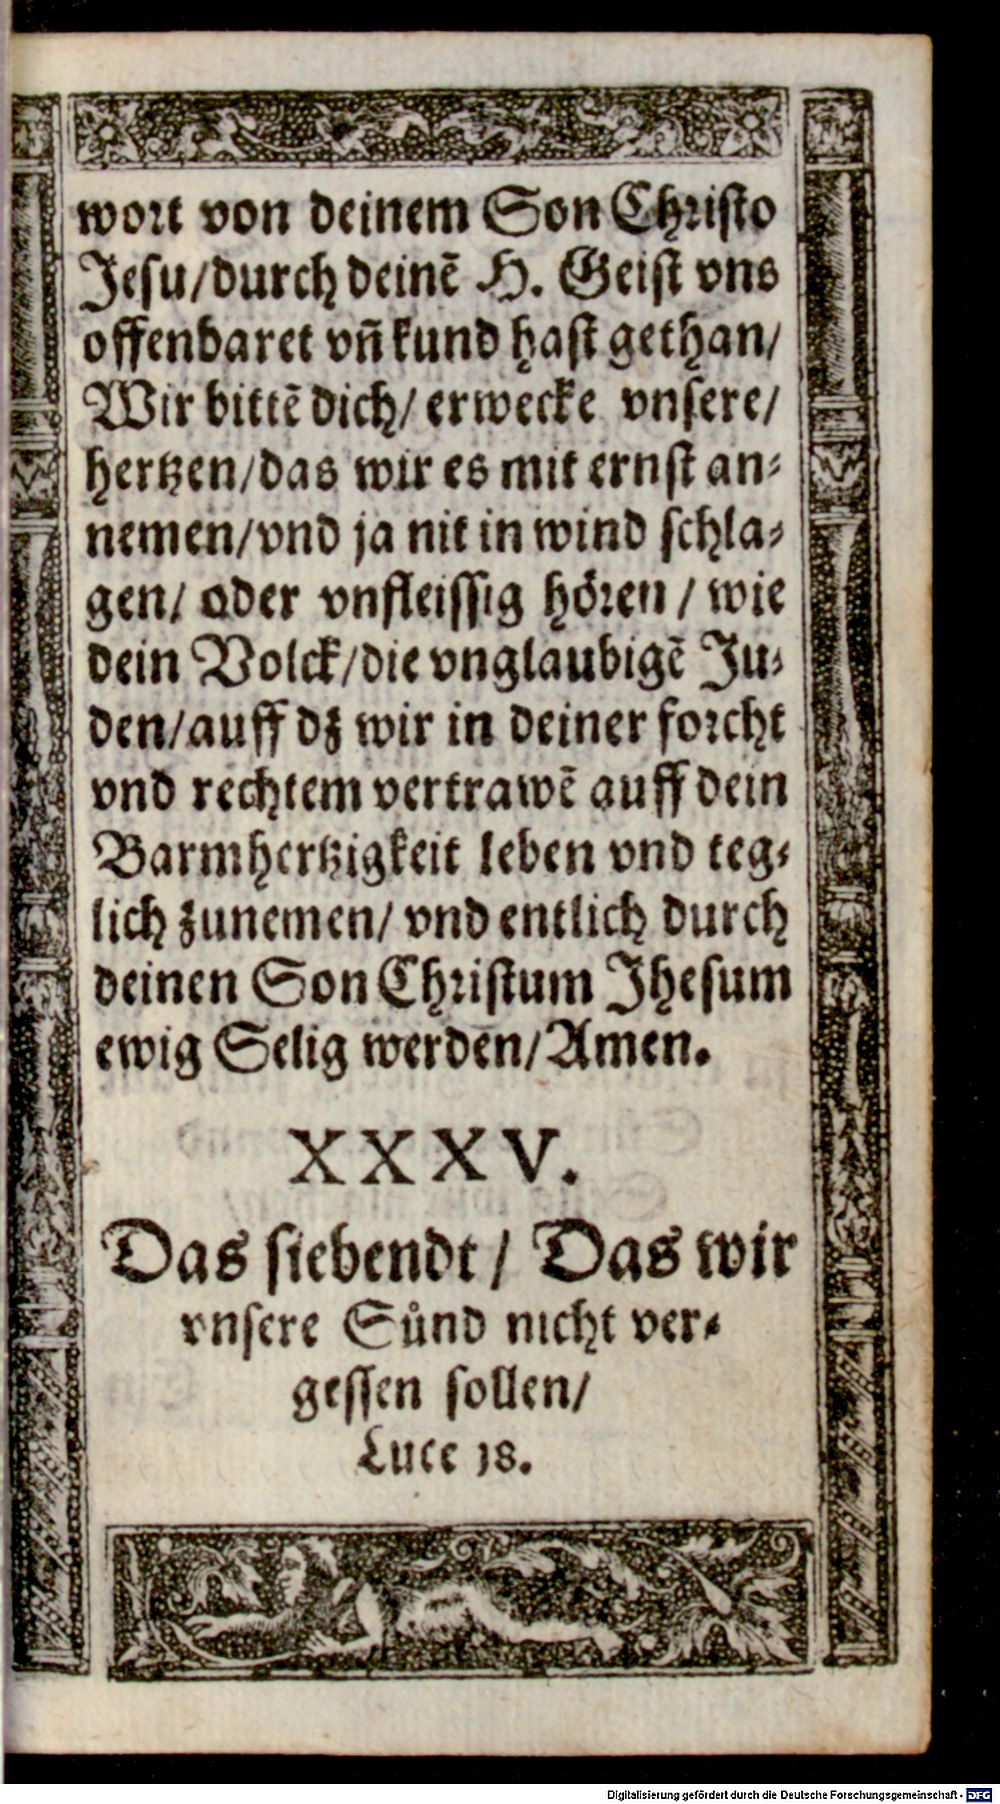 wort von deinem Son Christo
Jesu/durch deinē H. Geist vns
offenbaret vñ kund hast gethan/
Wir bittē dich/ erwecke vnsere/
hertzen/das wir es mit ernst an-
nemen/vnd ja nit in wind schla-
gen/ oder vnfleissig hören / wie
dein Volck/die vnglaubigē Ju-
den/auff dz wir in deiner forcht
vnd rechtem vertrawē auff dein
Barmhertzigkeit leben vnd teg-
lich zunemen/ vnd entlich durch
deinen Son Christum Jhesum
ewig Selig werden/Amen.
XXXV.
Das siebendt / Das wir
vnsere Sůnd nicht ver-
gessen sollen/
Luce 18.
Digitalisierung gefördert durch die Deutsche Forschungsgemeinschaft - DFG